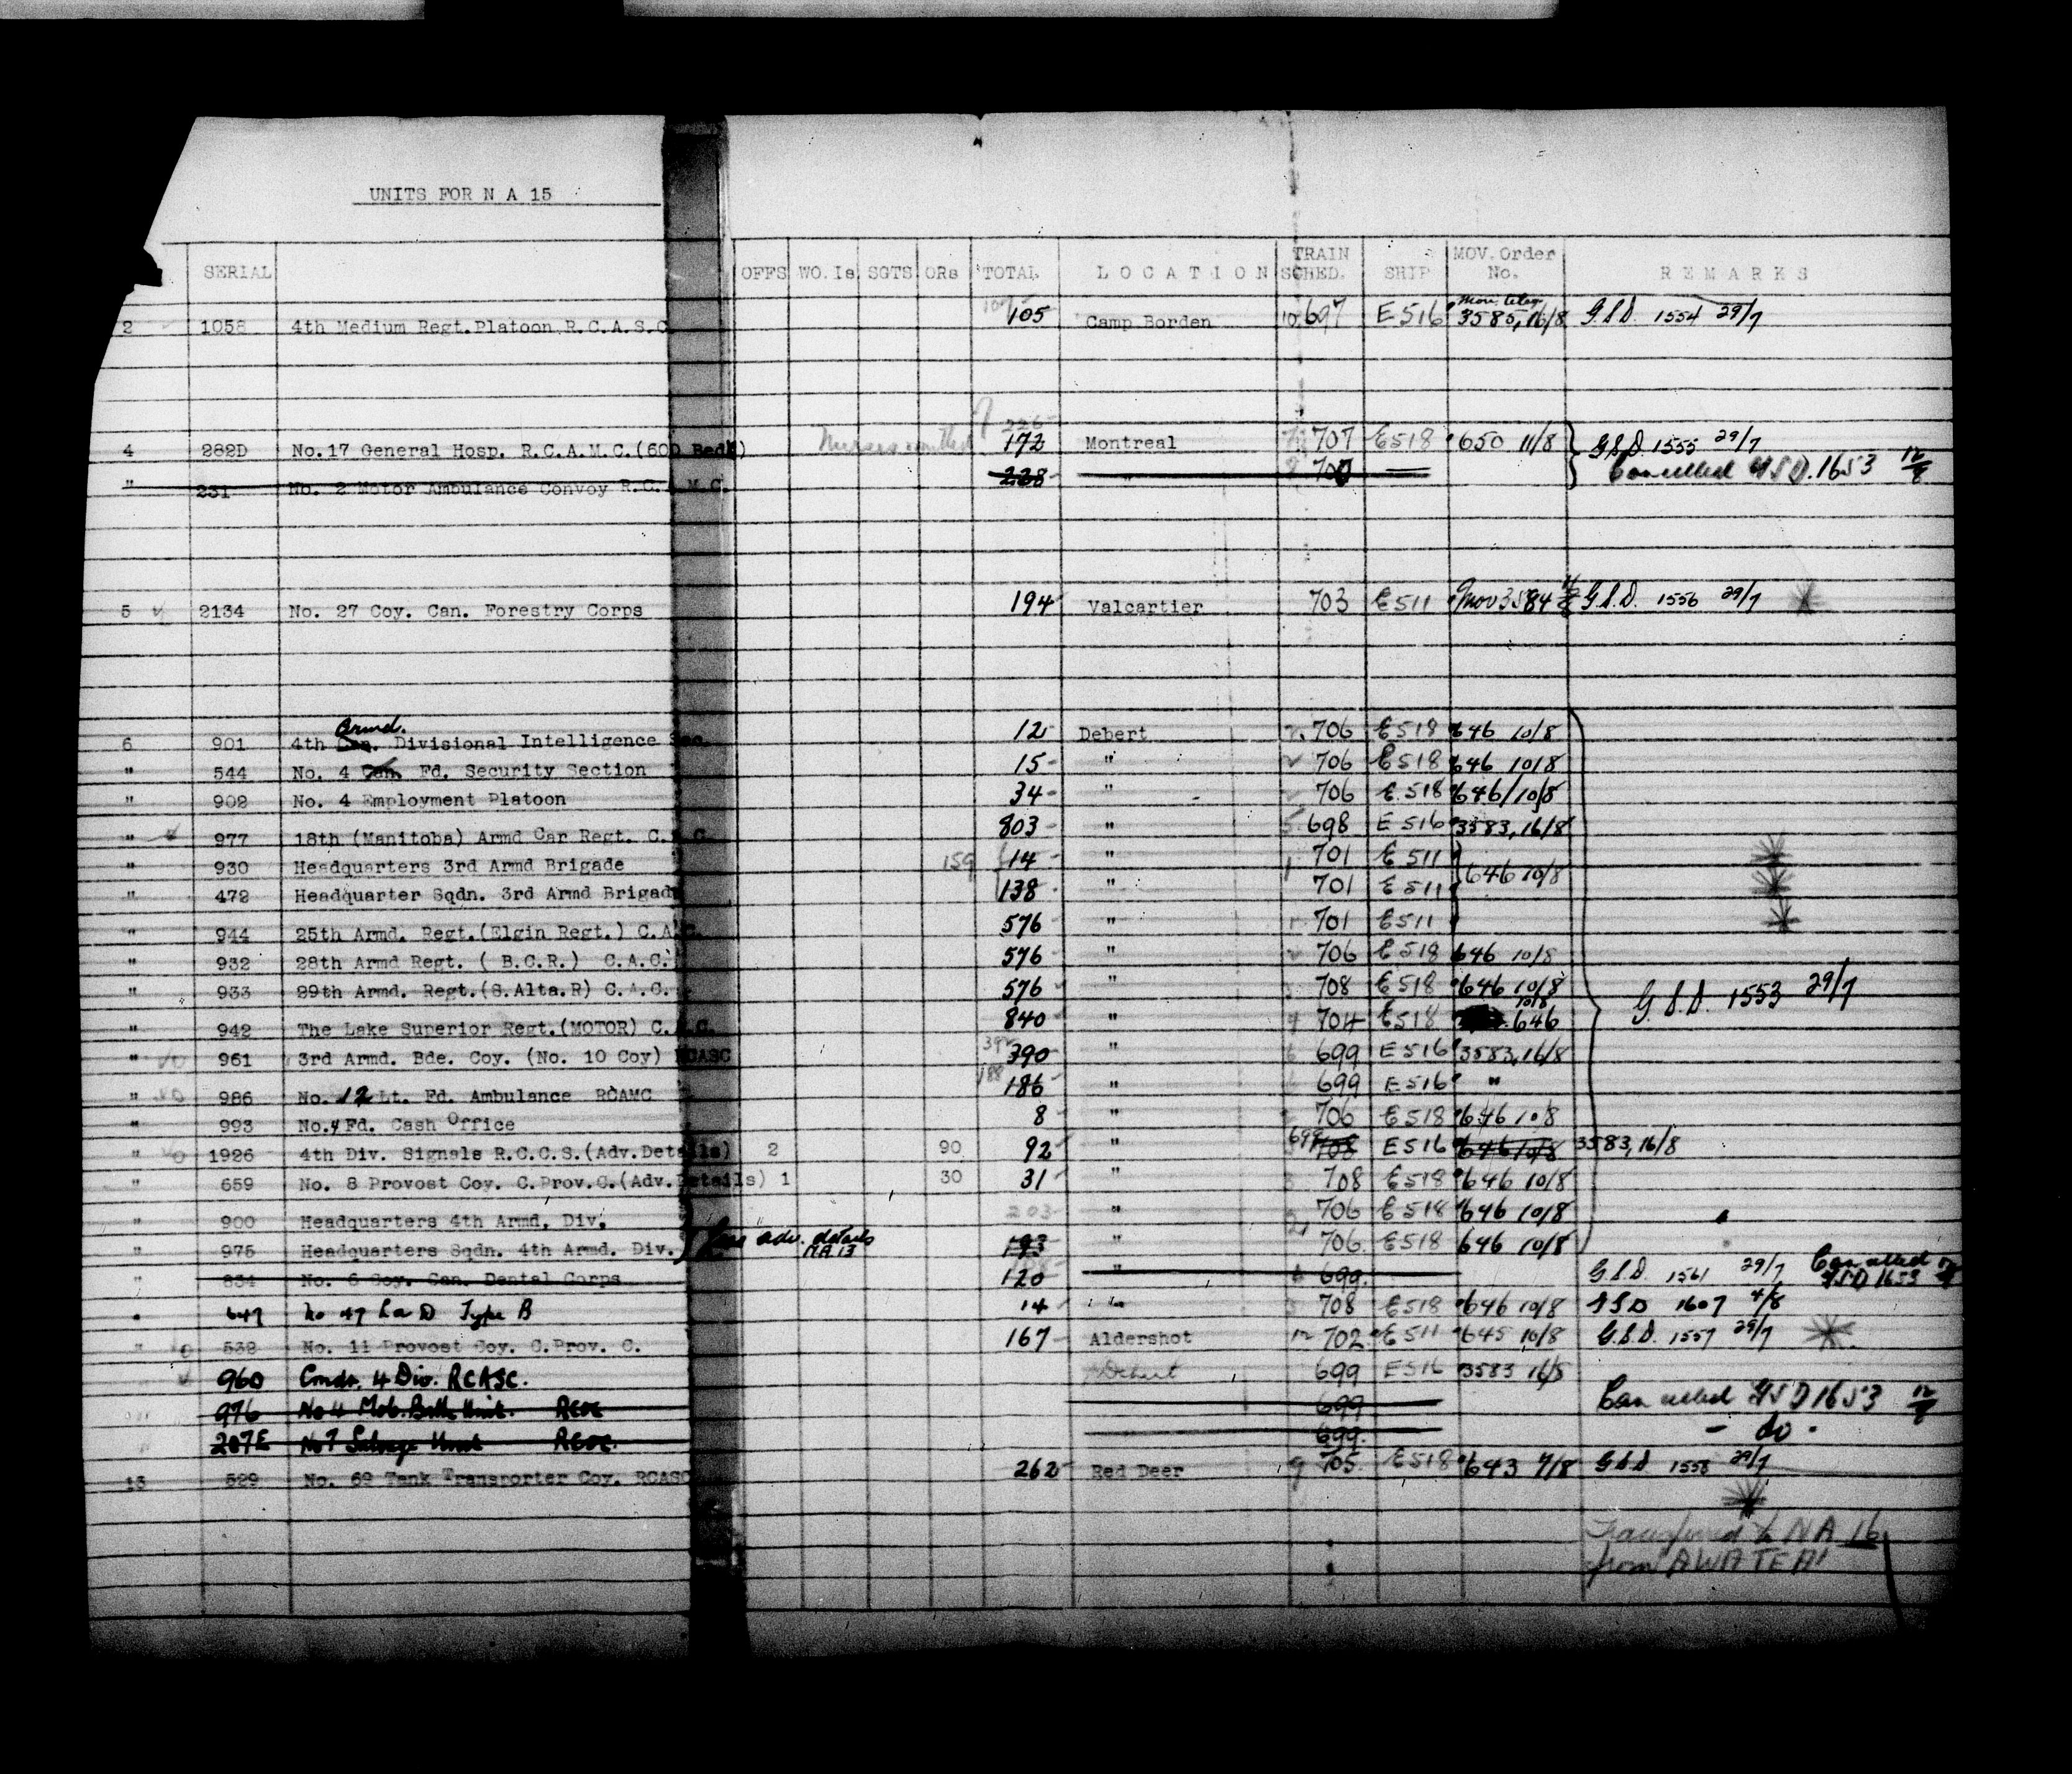 UNITS FOR N A 15
SERIAL OFFS WO.Is SGTS ORs TOTAL LOCATION TRAIN SCHED. SHIP MOV. Order No. REMARKS
2 1058 4th Medium Regt.Platoon R.C.A.S.C. 105 Camp Borden 10 697 E516 3585, 16/8 G.S.D. 1554 29/7
4 282D No.17 General Hosp. R.C.A.M.C.(600 Beds) Nurses omitted 226 172 Montreal 707 E518 650 11/8 G.S.D. 1555 29/7
" 231 No. 2 Motor Ambulance Convoy R.C.A.M.C. 228 " 700 Cancelled GSD.1653 12/8
5 2134 No. 27 Coy. Can. Forestry Corps 194 Valcartier 703 E511 Mov 3584 G.S.D. 1556 29/7
6 901 4th Can. Armd. Divisional Intelligence Sec. 12 Debert 706 E518 646 10/8
" 544 No. 4 Can. Fd. Security Section 15 " 706 E518 646 10/8
" 902 No. 4 Employment Platoon 34 " 706 E518 646/10/8
" 977 18th (Manitoba) Armd Car Regt. C.A.C. 803 " 5 698 E516 3583, 16/8
" 930 Headquarters 3rd Armd Brigade 159 14 " 1 701 E511 646 10/8
" 472 Headquarter Sqdn. 3rd Armd Brigade 138 " 701 E511
" 944 25th Armd. Regt.(Elgin Regt.) C.A.C. 576 " 701 E511
" 932 28th Armd Regt. ( B.C.R.) C.A.C. 576 " 706 E518 646 10/8
" 933 29th Armd. Regt.(S.Alta.R) C.A.C. 576 " 708 E518 646 10/8 G.S.D. 1553 29/7
" 942 The Lake Superior Regt.(MOTOR) C.A.C. 840 " 704 E518 646 10/8
" 961 3rd Armd. Bde. Coy. (No. 10 Coy) RCASC 390 " 699 E516 3583, 16/8
" 986 No. 12 Lt. Fd. Ambulance RCAMC 188 186 " 699 E516 "
" 993 No.4 Fd. Cash Office 8 " 706 E518 646 10/8
" 1926 4th Div. Signals R.C.C.S.(Adv.Details) 2 90 92 " 699 708 E516 646 10/8 3583, 16/8
" 659 No. 8 Provost Coy. C.Prov.C.(Adv.Details) 1 30 31 " 708 E518 646 10/8
" 900 Headquarters 4th Armd. Div. 203 " 706 E518 646 10/8
" 975 Headquarters Sqdn. 4th Armd. Div. less adv. details N.A.13 193 " 706 E518 646 10/8
" 834 No. 6 Coy. Can. Dental Corps 120 " 699 G.S.D. 1561 29/7 Cancelled GSD 1653
" 647 No 47 LAD Type B 14 " 708 E518 646 10/8 GSD 1607 4/8
" 538 No. 11 Provost Coy. C.Prov. C. 167 Aldershot 702 E511 645 10/8 G.S.D. 1557 29/7
960 Cmdr. 4 Div. RCASC. Debert 699 E516 3583 16/8
976 No 4 Mob. Bath Unit. RCOC 699 Cancelled GSD 1653 12/8
" 207E No 7 Salvage Unit RCOC. 699 - do -
13 529 No. 69 Tank Transporter Coy. RCASC 262 Red Deer 9 705 E518 643 7/8 G.S.D 1558 29/7
Transferred to NA 16
from AWATEA